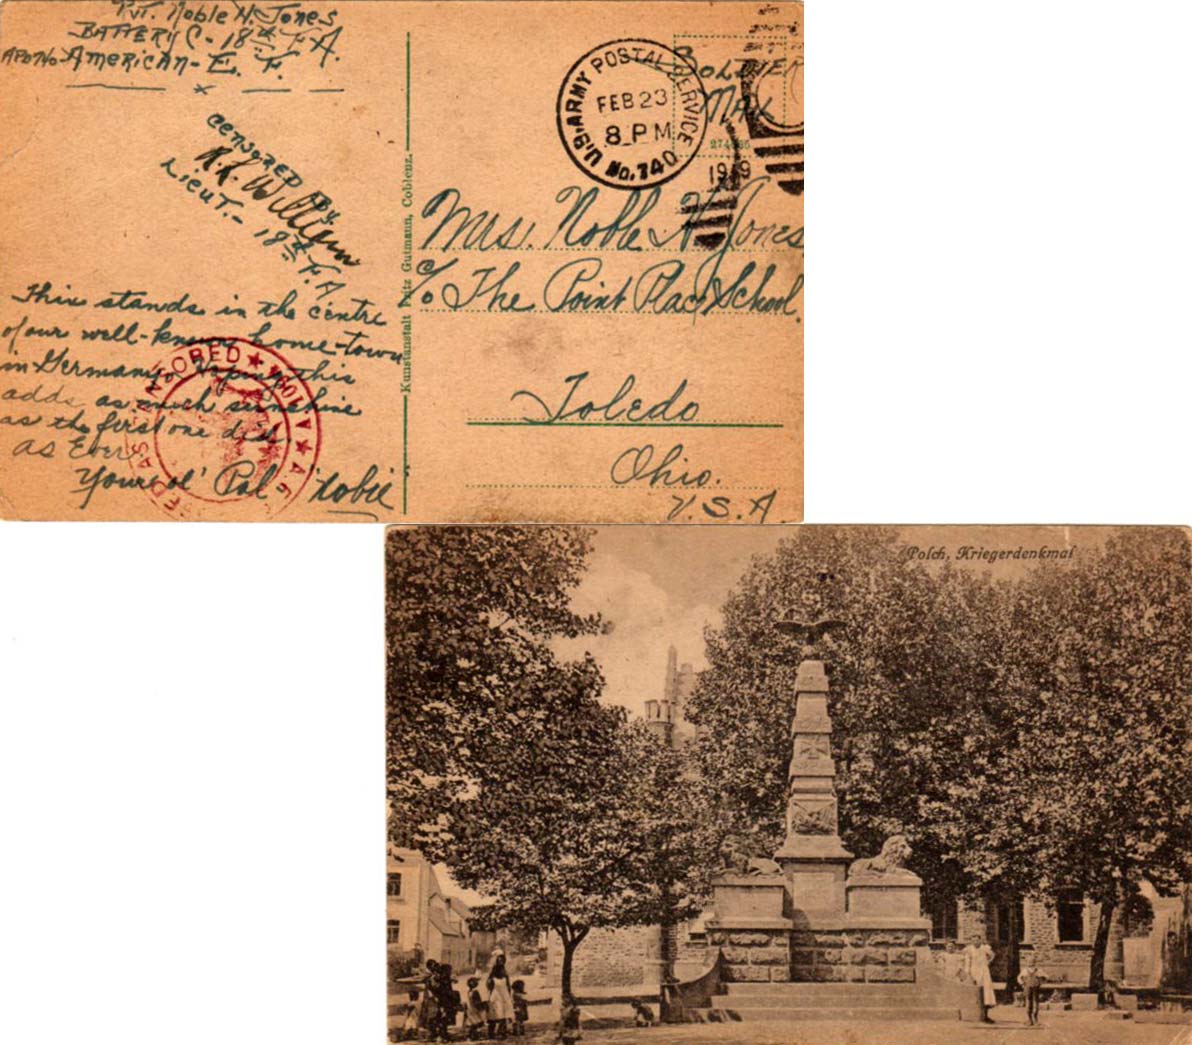 Pvt. Noble N. Jones
Battery C - 18th F. A.
APO No American - E. F.
x
Censored By
Lieut. - 18th F. A
This stands in the centre
of our well-known home-town
in Germany. Hoping this
adds as much sunshine
as the first one did
as Ever
Your ol' Pal 'Nobie'
CENSORED ★ A 1094 ★ A.E
Kunstanstalt Fritz Gutmann, Coblenz.
U.S. ARMY POSTAL SERVICE
FEB 23
8 PM
No. 740
1919
Soldier
Mail
Mrs. Noble N Jones
c/o The Point Place School.
Toledo
Ohio.
U. S. A
Polch, Kriegerdenkmal